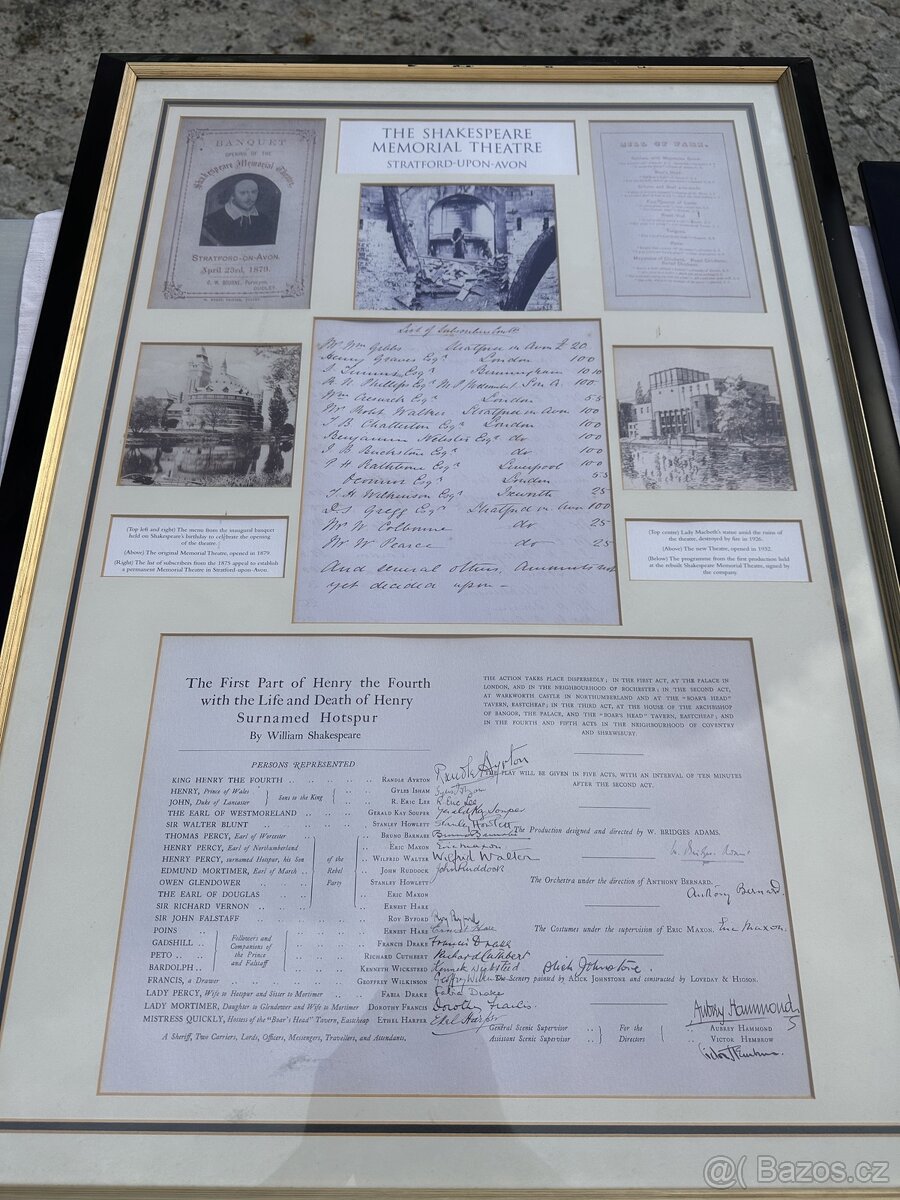 BANQUET
OPENING OF THE
Shakespeare Memorial Theatre,
STRATFORD-ON-AVON.
April 23rd, 1879.
C. W. BOURNE, Purveyor,
DUDLEY
THE SHAKESPEARE
MEMORIAL THEATRE
STRATFORD-UPON-AVON
BILL OF FARE.
List of Subscribers
Mr Wm Gibbs Stratford on Avon £ 20
Henry Graves Esqr London 100
Esqr Birmingham 10 10
Phillips Esqr
Esqr London 5 5
Mr Robt Walker Stratford on Avon 100
F B Chatterton Esqr London 100
Benjamin Webster Esqr do 100
J B Buckstone Esqr do 100
P H Rathbone Esqr Liverpool 10 0
Esqr London 5 5
T. H Wilkinson Esqr 25
D. S. Gregg Esqr Stratford on Avon 100
Mr W Colbourne do 25
Mr W Pearce do 25
And several others, Amounts not
yet decided upon —
(Top left and right) The menu from the inaugural banquet
held on Shakespeare's birthday to celebrate the opening
of the theatre.
(Above) The original Memorial Theatre, opened in 1879
(Right) The list of subscribers from the 1875 appeal to establish
a permanent Memorial Theatre in Stratford-upon-Avon.
(Top centre) Lady Macbeth's statue amid the ruins of
the theatre, destroyed by fire in 1926.
(Above) The new Theatre, opened in 1932.
(Below) The programme from the first production held
at the rebuilt Shakespeare Memorial Theatre, signed by
the company.
The First Part of Henry the Fourth
with the Life and Death of Henry
Surnamed Hotspur
By William Shakespeare
THE ACTION TAKES PLACE DISPERSEDLY; IN THE FIRST ACT, AT THE PALACE IN
LONDON, AND IN THE NEIGHBOURHOOD OF ROCHESTER; IN THE SECOND ACT,
AT WARKWORTH CASTLE IN NORTHUMBERLAND AND AT THE "BOAR'S HEAD"
TAVERN, EASTCHEAP; IN THE THIRD ACT, AT THE HOUSE OF THE ARCHBISHOP
OF BANGOR, THE PALACE, AND THE "BOAR'S HEAD" TAVERN, EASTCHEAP; AND
IN THE FOURTH AND FIFTH ACTS IN THE NEIGHBOURHOOD OF COVENTRY
AND SHREWSBURY
PERSONS REPRESENTED
KING HENRY THE FOURTH .. RANDLE AYRTON Randle Ayrton
HENRY, Prince of Wales } Sons to the King { GYLES ISHAM Gyles Isham
JOHN, Duke of Lancaster R. ERIC LEE R. Eric Lee
THE EARL OF WESTMORELAND .. GERALD KAY SOUPER Gerald Kay Souper
SIR WALTER BLUNT .. STANLEY HOWLETT Stanley Howlett
THOMAS PERCY, Earl of Worcester BRUNO BARNABE Bruno Barnabe
HENRY PERCY, Earl of Northumberland ERIC MAXON Eric Maxon
HENRY PERCY, surnamed Hotspur, his Son of the WILFRID WALTER Wilfrid Walter
EDMUND MORTIMER, Earl of March .. Rebel JOHN RUDDOCK John Ruddock
OWEN GLENDOWER .. Party STANLEY HOWLETT
THE EARL OF DOUGLAS .. ERIC MAXON
SIR RICHARD VERNON .. ERNEST HARE
SIR JOHN FALSTAFF .. ROY BYFORD Roy Byford
POINS .. ERNEST HARE Ernest Hare
GADSHILL .. Followers and Companions of the Prince and Falstaff FRANCIS DRAKE Francis Drake
PETO .. RICHARD CUTHBERT Richard Cuthbert
BARDOLPH .. KENNETH WICKSTEED Kenneth Wicksteed
FRANCIS, a Drawer .. GEOFFREY WILKINSON Geoffrey Wilkinson
LADY PERCY, Wife to Hotspur and Sister to Mortimer .. FABIA DRAKE Fabia Drake
LADY MORTIMER, Daughter to Glendower and Wife to Mortimer DOROTHY FRANCIS Dorothy Francis
MISTRESS QUICKLY, Hostess of the "Boar's Head" Tavern, Eastcheap ETHEL HARPER Ethel Harper
A Sheriff, Two Carriers, Lords, Officers, Messengers, Travellers, and Attendants.
PLAY WILL BE GIVEN IN FIVE ACTS, WITH AN INTERVAL OF TEN MINUTES
AFTER THE SECOND ACT.
The Production designed and directed by W. BRIDGES ADAMS.
W. Bridges Adams
The Orchestra under the direction of ANTHONY BERNARD.
Anthony Bernard
The Costumes under the supervision of ERIC MAXON. Eric Maxon.
Alick Johnstone.
The Scenery painted by ALICK JOHNSTONE and constructed by LOVEDAY & HIGSON.
Aubrey Hammond
General Scenic Supervisor .. } For the { AUBREY HAMMOND
Assistant Scenic Supervisor .. Directors VICTOR HEMBROW
Victor Hembrow.
@( Bazos.cz